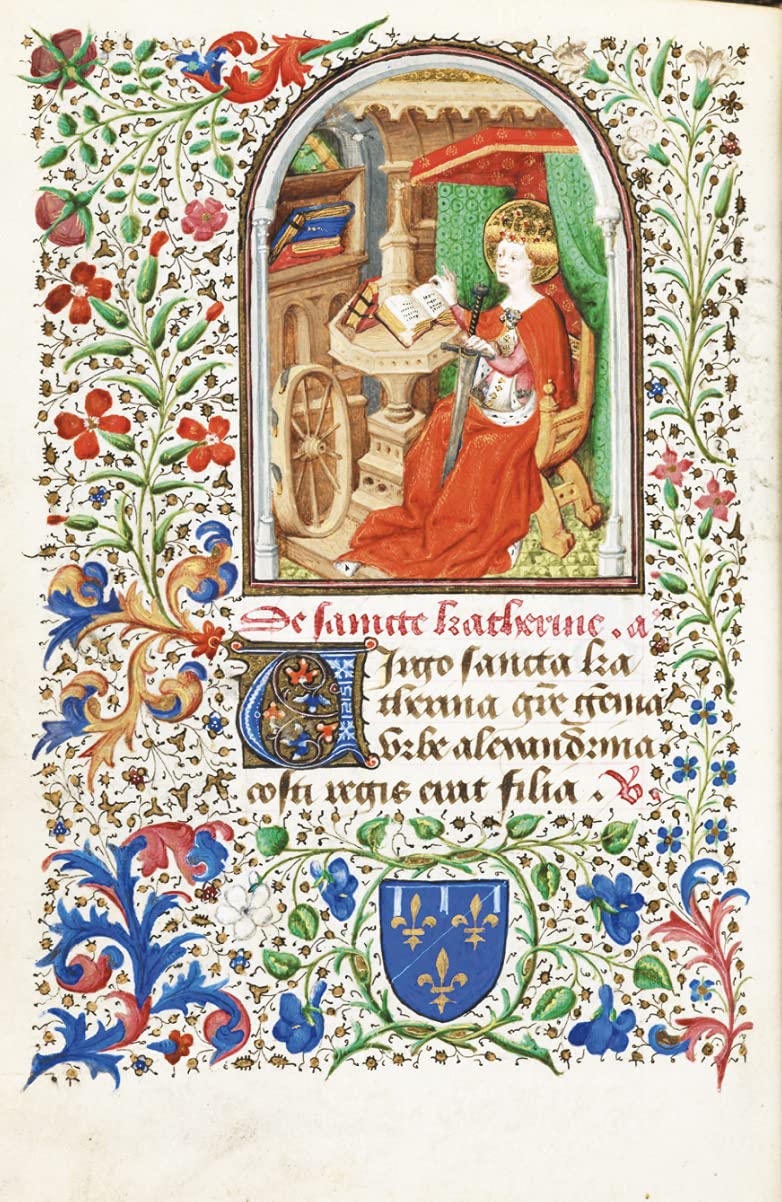 De sancte katherine . a
Virgo sancta ka
therina gr̄e gēma
Vrbe alexandrina
costi regis erat filia . V.